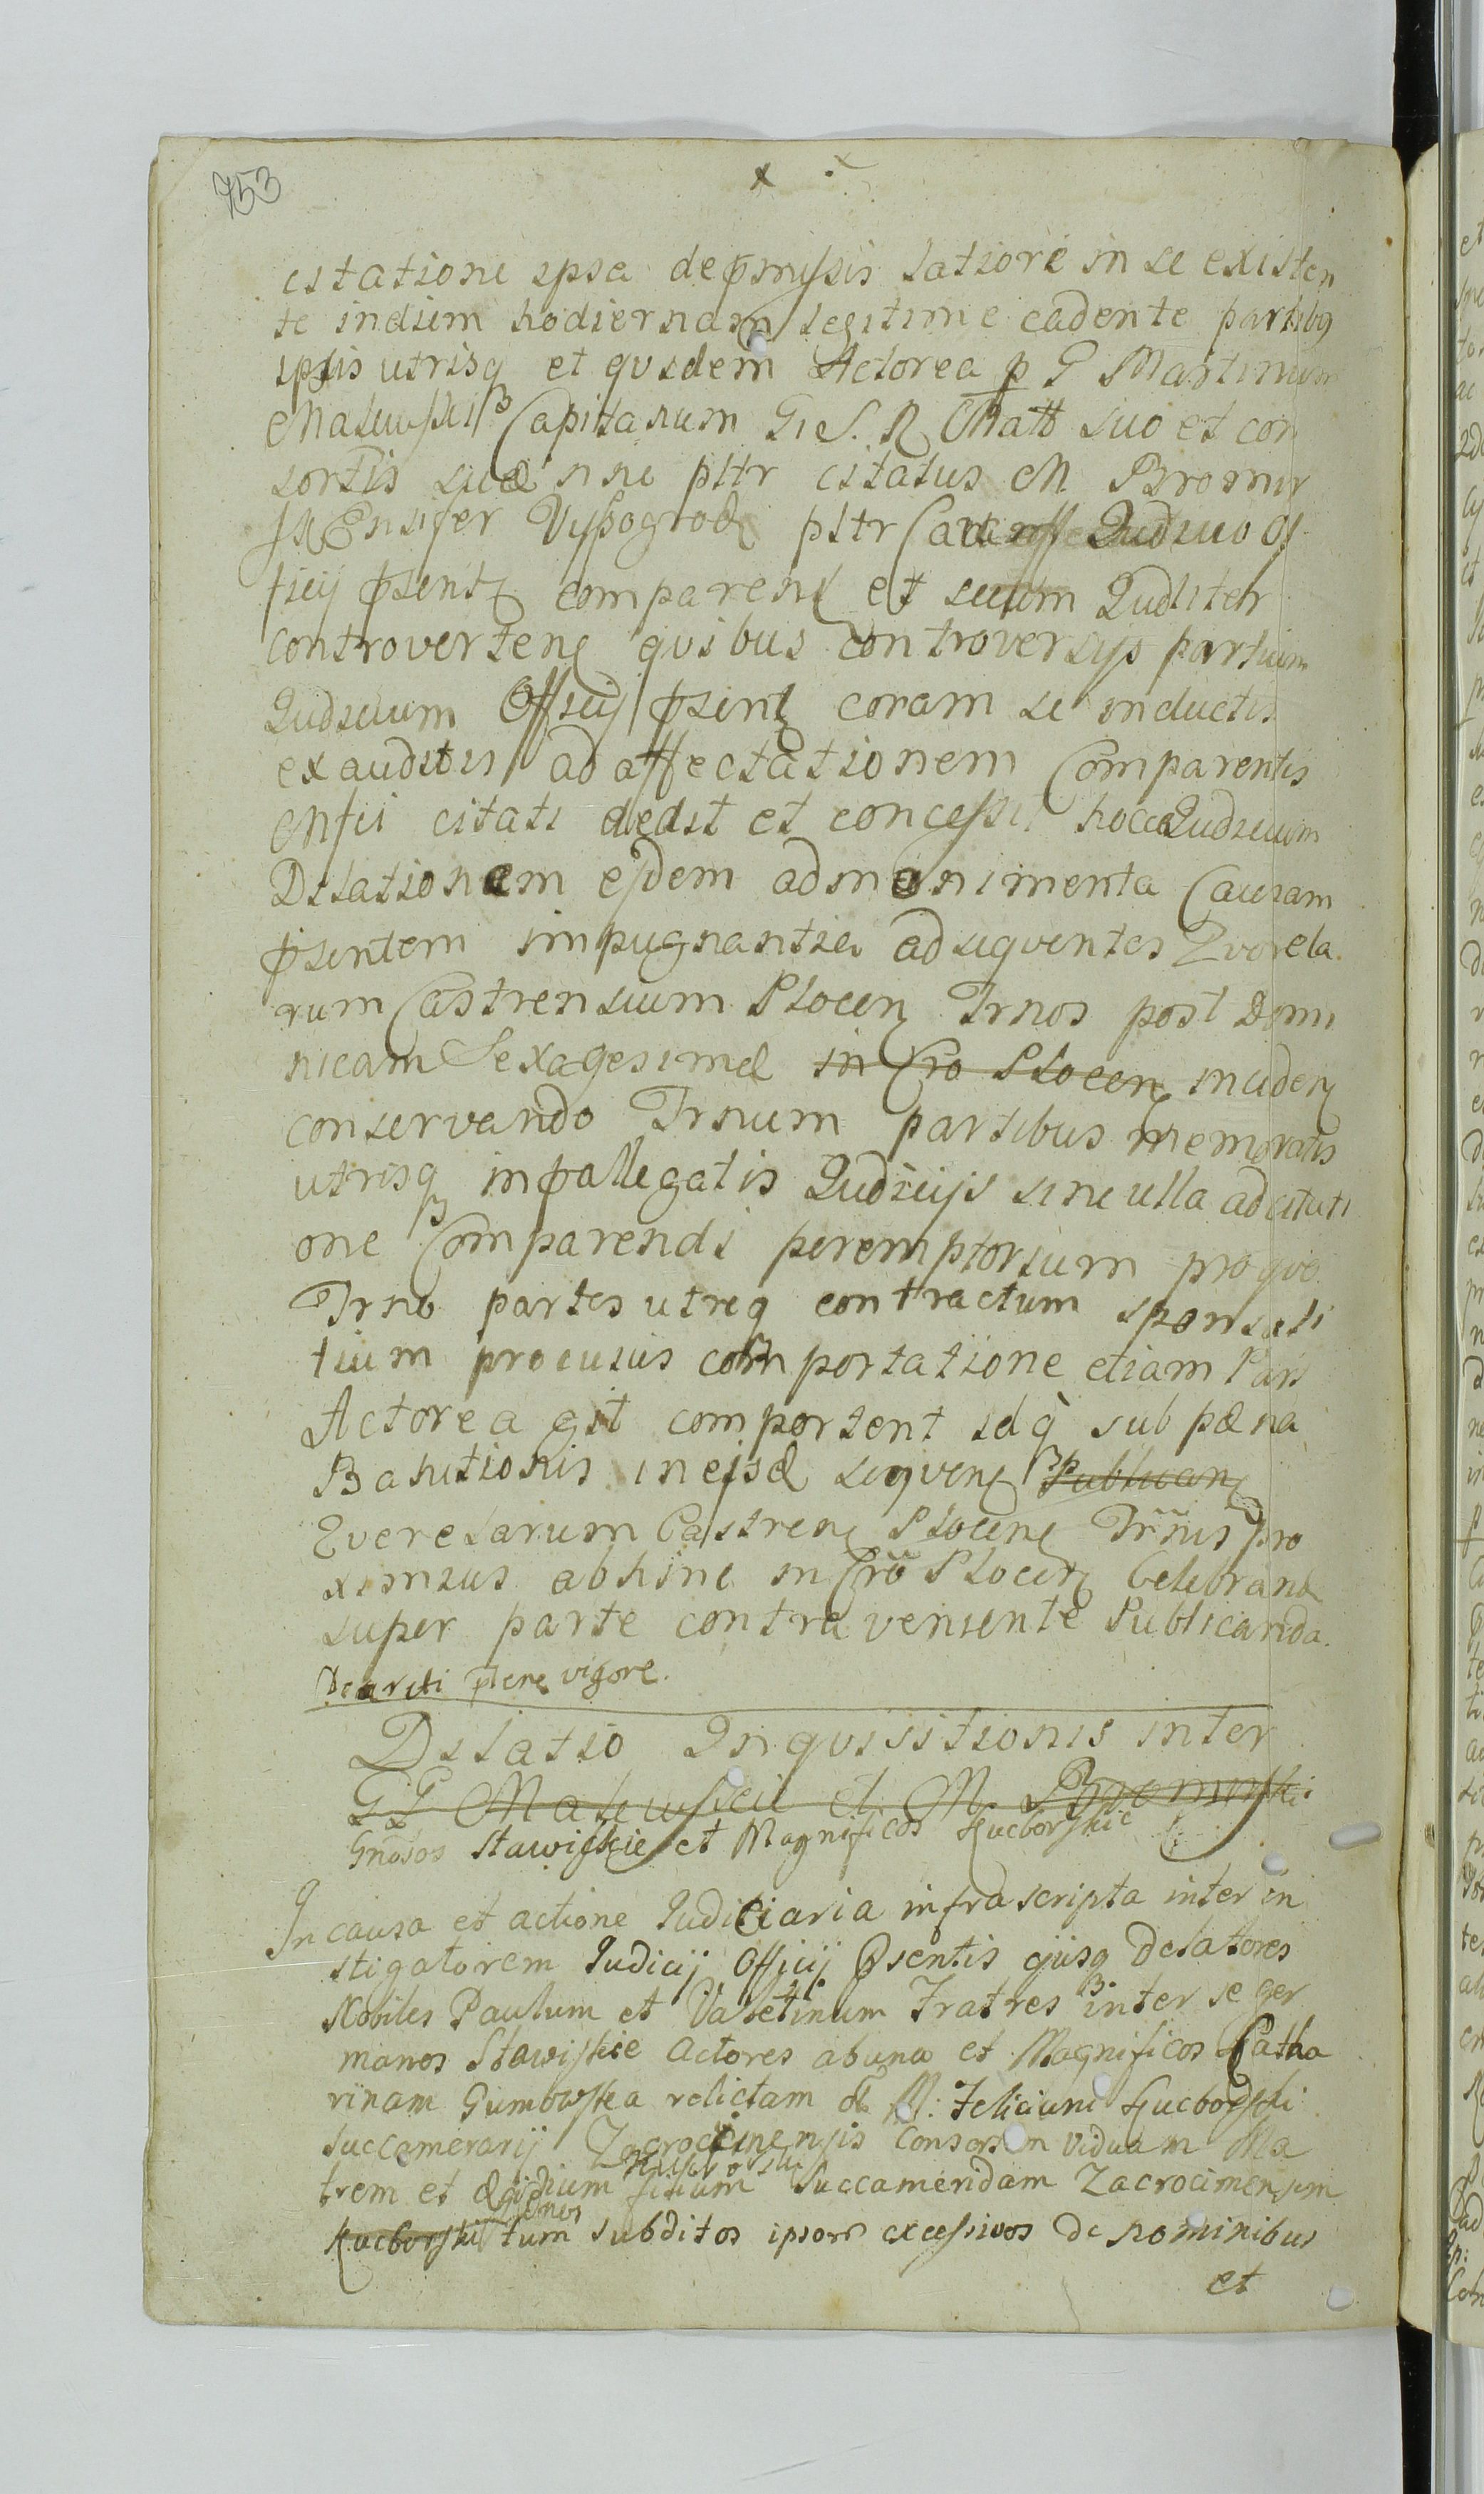 753
citatione ipsa de pmissis latiori in se existen
te in diem hodiernam legitime cadente partibq
ipsis utrisq et qvidem Actorea p G Martinum
Malewski Capitaneum S. R. Matt suo et con
sortis suæ nne pltr citatus M Bromir
ski Ensifer Vyszogrod pltr Judicio Of
ficij psenti comparen et secum Juditer
controverten qvibus controversijs partium
Judicium Officij psens coram se inductis
exauditis ad affectationem Comparentis
Mfci citati dedit et concessit hocce Judicium
Dilationem ejdem ad monimenta Causam
psentem impugnantia ad seqventes Qvorela
rum Castrensium Plocen Trnos post Domi
nicam Sexagesimæ in Cro Plocen inciden
conservando Trnum partibus memoratis
utrisq in pallegatis Judicijs sine ulla adcitati
one Comparendi peremptorium pro qvo
Trno partes utreq contractum sponsali
tium pro cujus comportatione etiam Pars
Actorea git comportent idq sub pæna
Banitionis in ejsd seqven Publican
Qverelarum Castren Plocen Trnis pro
ximius abhinc in Cro Plocen Celebrand
super parte contraveniente Publicanda.
Decreti pleno vigore.
Dilatio Inqvisitionis inter
GG Malewskie et M. Bromirski
Gnosos Stawiskie et Magnificos Kucborskie
In causa et actione Judiciaria infrascripta inter in
stigatorem Judicij Officij Psentis ejusq delatores
Nobiles Paulum et Valetinum Fratres inter se ger
manos Stawiskie Actores ab una et Magnificos Catha
rinam Gumowska relictam M: Feliciani Kucborski
Succamerarij Zacrocimensis Consortem Viduam Ma
trem et Ægidium Kucborski filium Succameridam Zacrocimensem
Kucborski tum subditos ipsor excessivos de nominibus
et